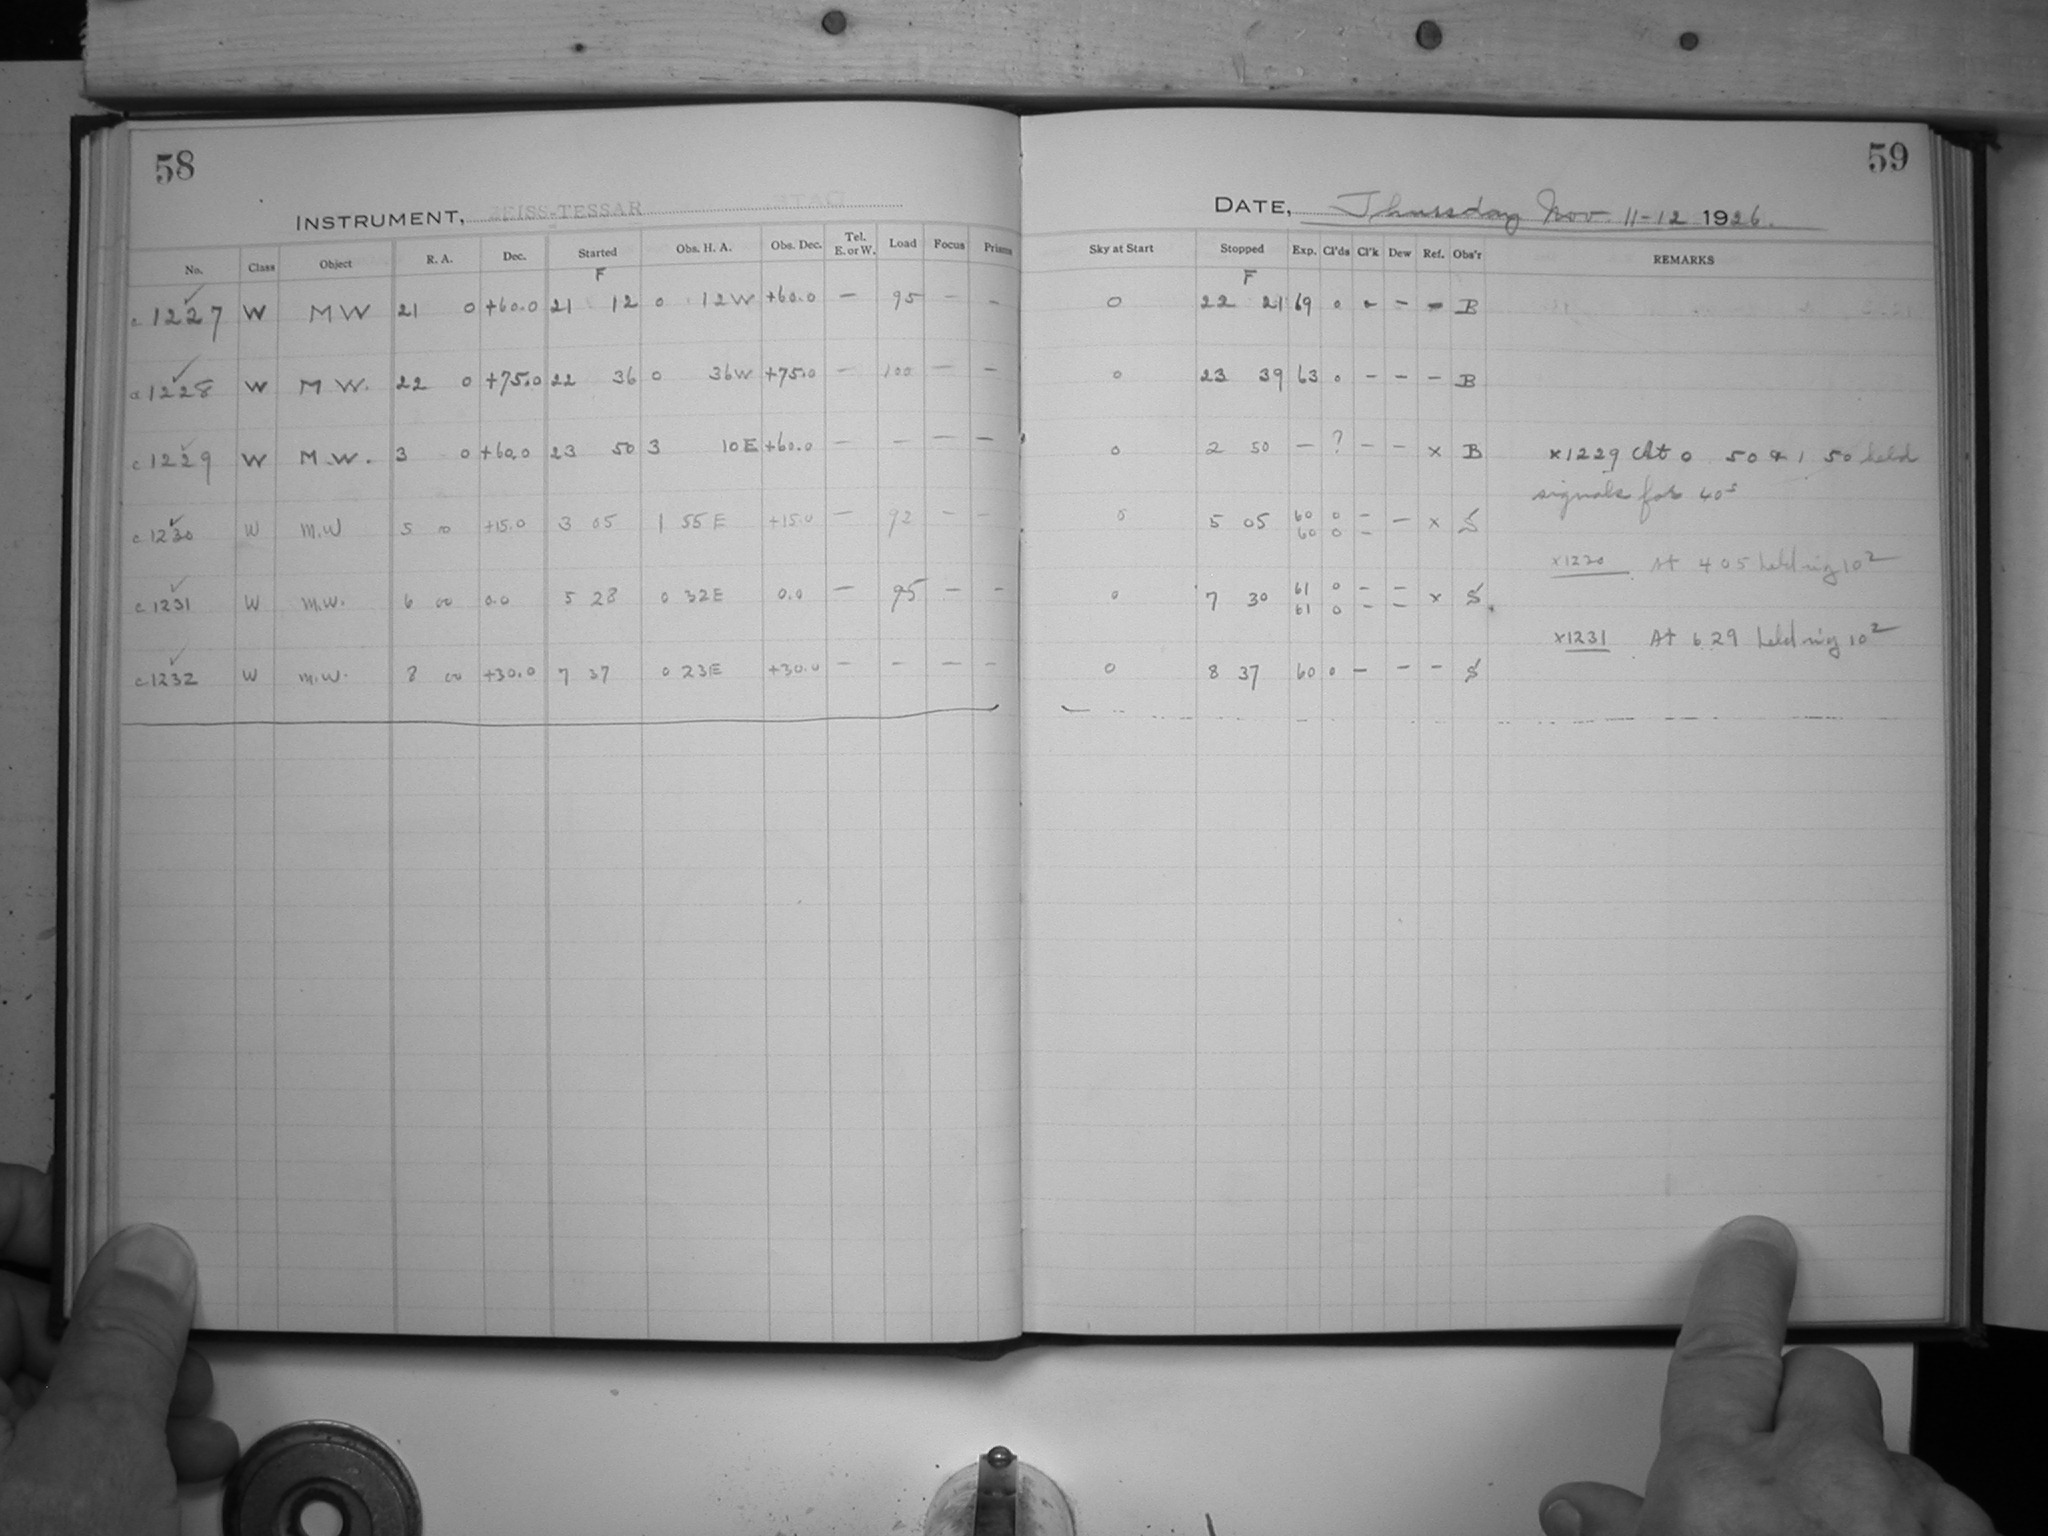 58
INSTRUMENT, ZEISS-TESSAR
No. Class Object R. A. Dec. Started Obs. H. A. Obs. Dec. Tel. E. or W. Load Focus Prisms
F
c 1227 W MW 21 0 +60.0 21 12 0 12W +60.0 — 95 — —
1228 W M W. 22 0 +75.0 22 36 0 36W +75.0 — 100 — —
c 1229 W M.W. 3 0 +60.0 23 50 3 10E +60.0 — — — —
c 1230 W M.W 5 00 +15.0 3 05 1 55E +15.0 — 92 — —
c 1231 W M.W. 6 00 0.0 5 28 0 32E 0.0 — 95 — —
c 1232 W M.W. 8 00 +30.0 7 37 0 23E +30.0 — — — —
59
DATE, Thursday Nov. 11-12 1926.
Sky at Start Stopped Exp. Cl'ds Cl'k Dew Ref. Obs'r REMARKS
F
0 22 21 69 0 - — — B
0 23 39 63 0 — — — B
0 2 50 — ? — — x B
x1229 At 0 50 & 1 50 held
signals for 40s
0 5 05 60 0 — — x S
60 0 —
x1230 At 4 05 held
0 7 30 61 0 — — x S
61 0 — —
x1231 At 6 29 held
0 8 37 60 0 — — — S